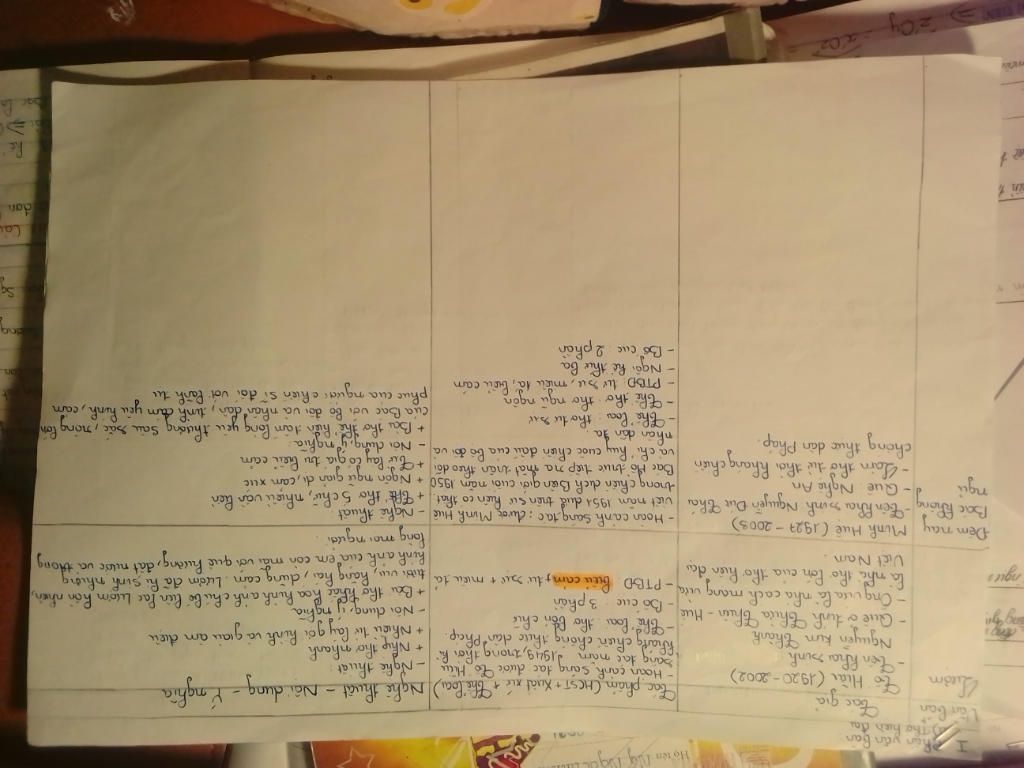 I Phần văn bản
1) Thơ hiện đại
Văn bản
Tác giả
Tác phẩm (HCST + Xuất xứ + Thể loại)
Nghệ thuật - Nội dung - Ý nghĩa
Lượm
Tố Hữu (1920 - 2002)
- Tên khai sinh
Nguyễn Kim Thành
- Quê ở tỉnh Thừa Thiên - Huế
- Ông vừa là nhà cách mạng vừa
là nhà thơ lớn của thơ hiện đại
Việt Nam.
- Hoàn cảnh sáng tác được Tố Hữu
sáng tác năm 1949, trong thời kì
kháng chiến chống thực dân Pháp.
- Thể loại: thơ bốn chữ
- Bố cục: 3 phần
- PTBĐ: biểu cảm, tự sự + miêu tả
- Nghệ thuật
+ Nhịp thơ nhanh
+ Nhiều từ láy gợi hình và giàu âm điệu
- Nội dung, ý nghĩa
+ Bài thơ khắc họa hình ảnh chú bé liên lạc Lượm hồn nhiên,
tươi vui, hăng hái, dũng cảm. Lượm đã hi sinh nhưng
hình ảnh của em còn mãi với quê hương, đất nước và trong
lòng mọi người.
Đêm nay
Bác không
ngủ
Minh Huệ (1927 - 2003)
- Tên khai sinh Nguyễn Đức Thái
- Quê: Nghệ An
- Làm thơ từ thời kháng chiến
chống thực dân Pháp.
- Hoàn cảnh sáng tác: được Minh Huệ
viết năm 1951 dựa trên sự kiện có thật
trong chiến dịch Biên giới cuối năm 1950
Bác Hồ trực tiếp ra mặt trận theo dõi
và chỉ huy cuộc chiến đấu của bộ đội và
nhân dân ta.
- Thể loại: thơ tự sự
- Thể thơ: thơ ngũ ngôn
- PTBĐ: tự sự, miêu tả, biểu cảm
- Ngôi kể thứ ba
- Bố cục: 2 phần
- Nghệ thuật
+ Thể thơ 5 chữ, nhiều vần liền
+ Ngôn ngữ giản dị, cảm xúc
+ Từ láy có giá trị biểu cảm
- Nội dung, ý nghĩa
+ Bài thơ thể hiện tấm lòng yêu thương sâu sắc, rộng lớn
của Bác với bộ đội và nhân dân, tình cảm yêu kính, cảm
phục của người chiến sĩ đối với lãnh tụ